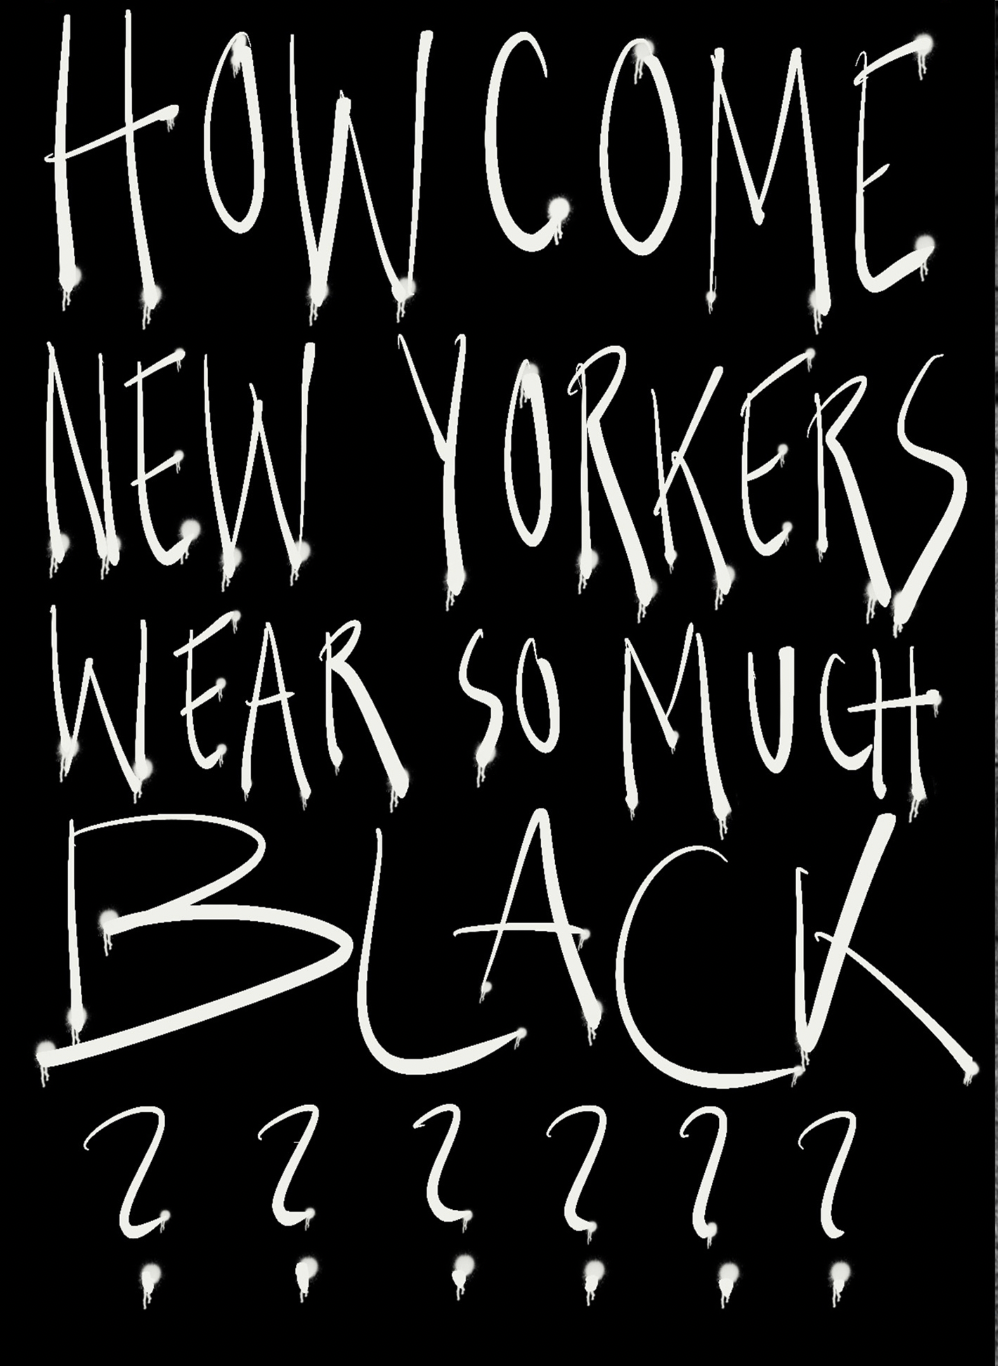 HOW COME
NEW YORKERS
WEAR SO MUCH
BLACK
? ? ? ? ? ?